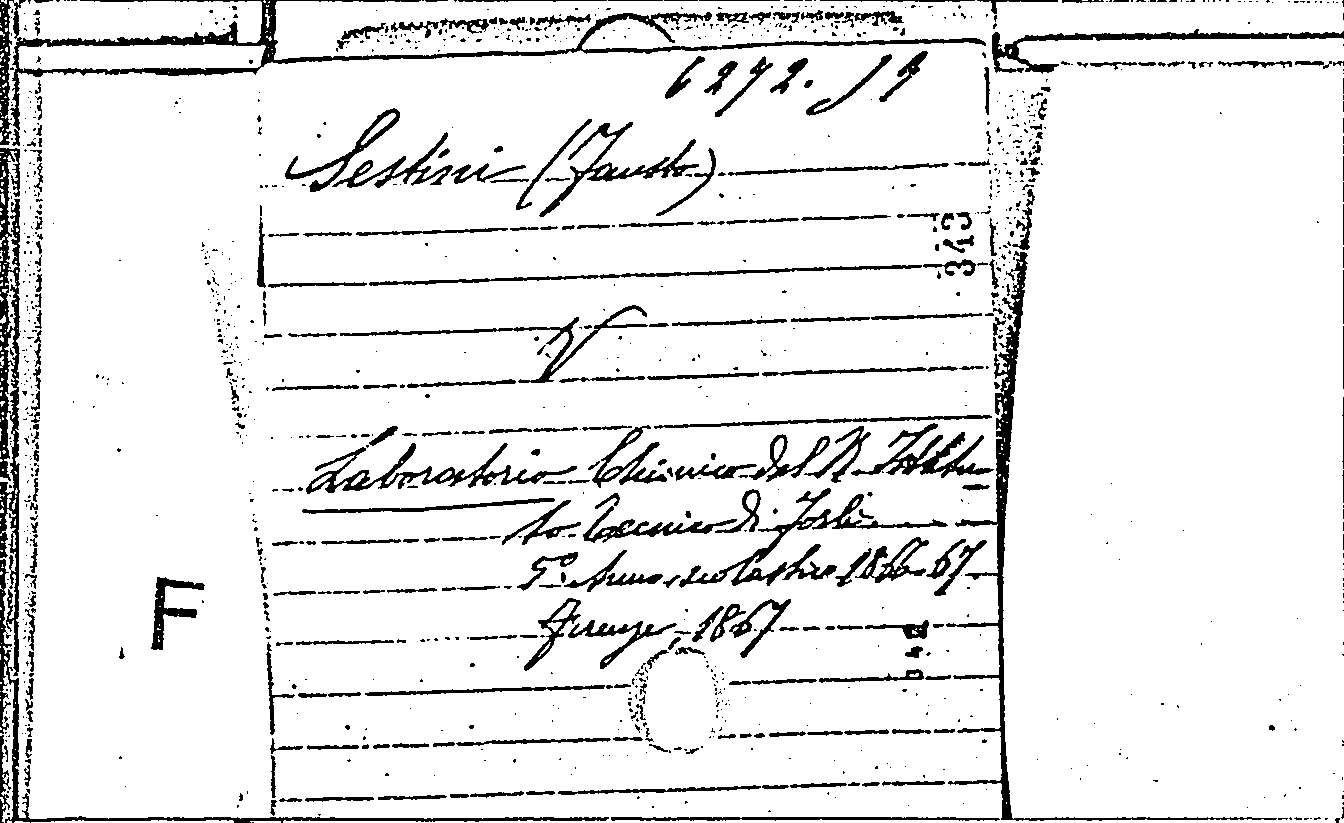 6272. J 4
Sestini (Fausto)
343
V
Laboratorio Chimico del R. Istitu-
to Tecnico di Forlì.
5º Anno scolastico 1866-67
Firenze, 1867
F